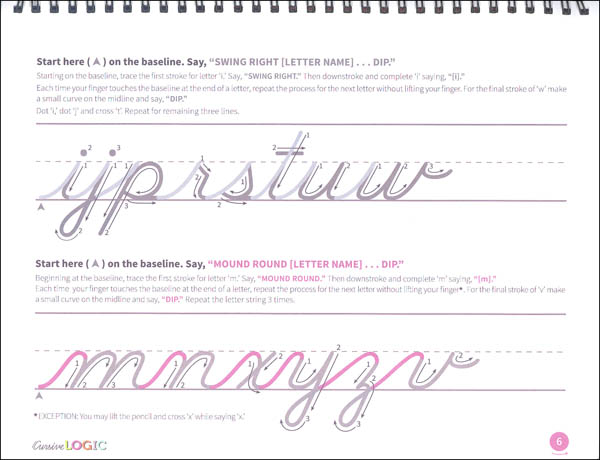 Start here ( ) on the baseline. Say, “SWING RIGHT [LETTER NAME] . . . DIP.”
Starting on the baseline, trace the first stroke for letter ‘i.’ Say, “SWING RIGHT.” Then downstroke and complete ‘i’ saying, “[i].”
Each time your finger touches the baseline at the end of a letter, repeat the process for the next letter without lifting your finger. For the final stroke of ‘w’ make
a small curve on the midline and say, “DIP.”
Dot ‘i,’ dot ‘j’ and cross ‘t’. Repeat for remaining three lines.
ijprstuw
Start here ( ) on the baseline. Say, “MOUND ROUND [LETTER NAME] . . . DIP.”
Beginning at the baseline, trace the first stroke for letter ‘m.’ Say, “MOUND ROUND.” Then downstroke and complete ‘m’ saying, “[m].”
Each time your finger touches the baseline at the end of a letter, repeat the process for the next letter without lifting your finger*. For the final stroke of ‘v’ make
a small curve on the midline and say, “DIP.” Repeat the letter string 3 times.
mnxyzv
*EXCEPTION: You may lift the pencil and cross ‘x’ while saying ‘x.’
Cursive LOGIC
6